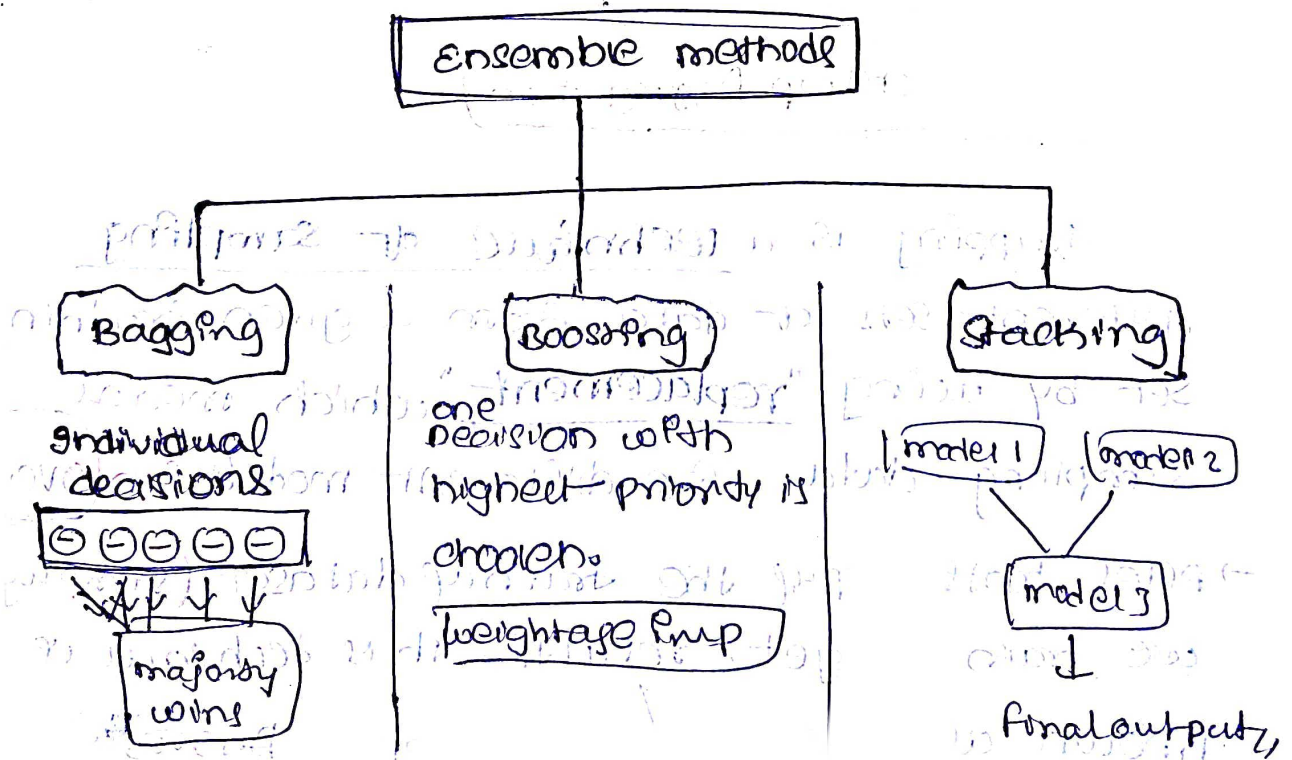 Ensemble methods
Bagging
Individual
decisions
majority
wins
Boosting
one
Decision with
highest priority is
choosen.
weightage imp
Stacking
model 1
model 2
model 3
final output